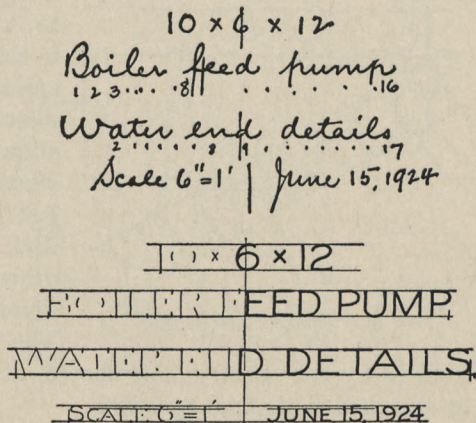 10 x 6 x 12
Boiler feed pump
1 2 3 ..... 8 . . . . . . . 16
Water end details
2 . . . . . . 8 9 . . . . . . . . 17
Scale 6"=1' | June 15, 1924
10 x 6 x 12
BOILER FEED PUMP
WATER END DETAILS.
SCALE 6"=1' JUNE 15, 1924